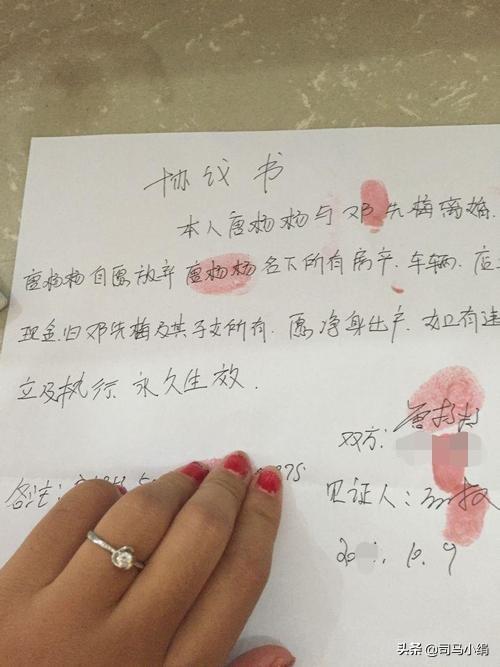 协议书
本人唐杨杨与邓先梅离婚.
唐杨杨自愿放弃唐杨杨名下所有房产.车辆.店
现金归邓先梅及其子女所有.愿净身出户.如有违
立及执行永久生效.
双方:唐杨杨
见证人:
备注:
10.9
头条@司马小编